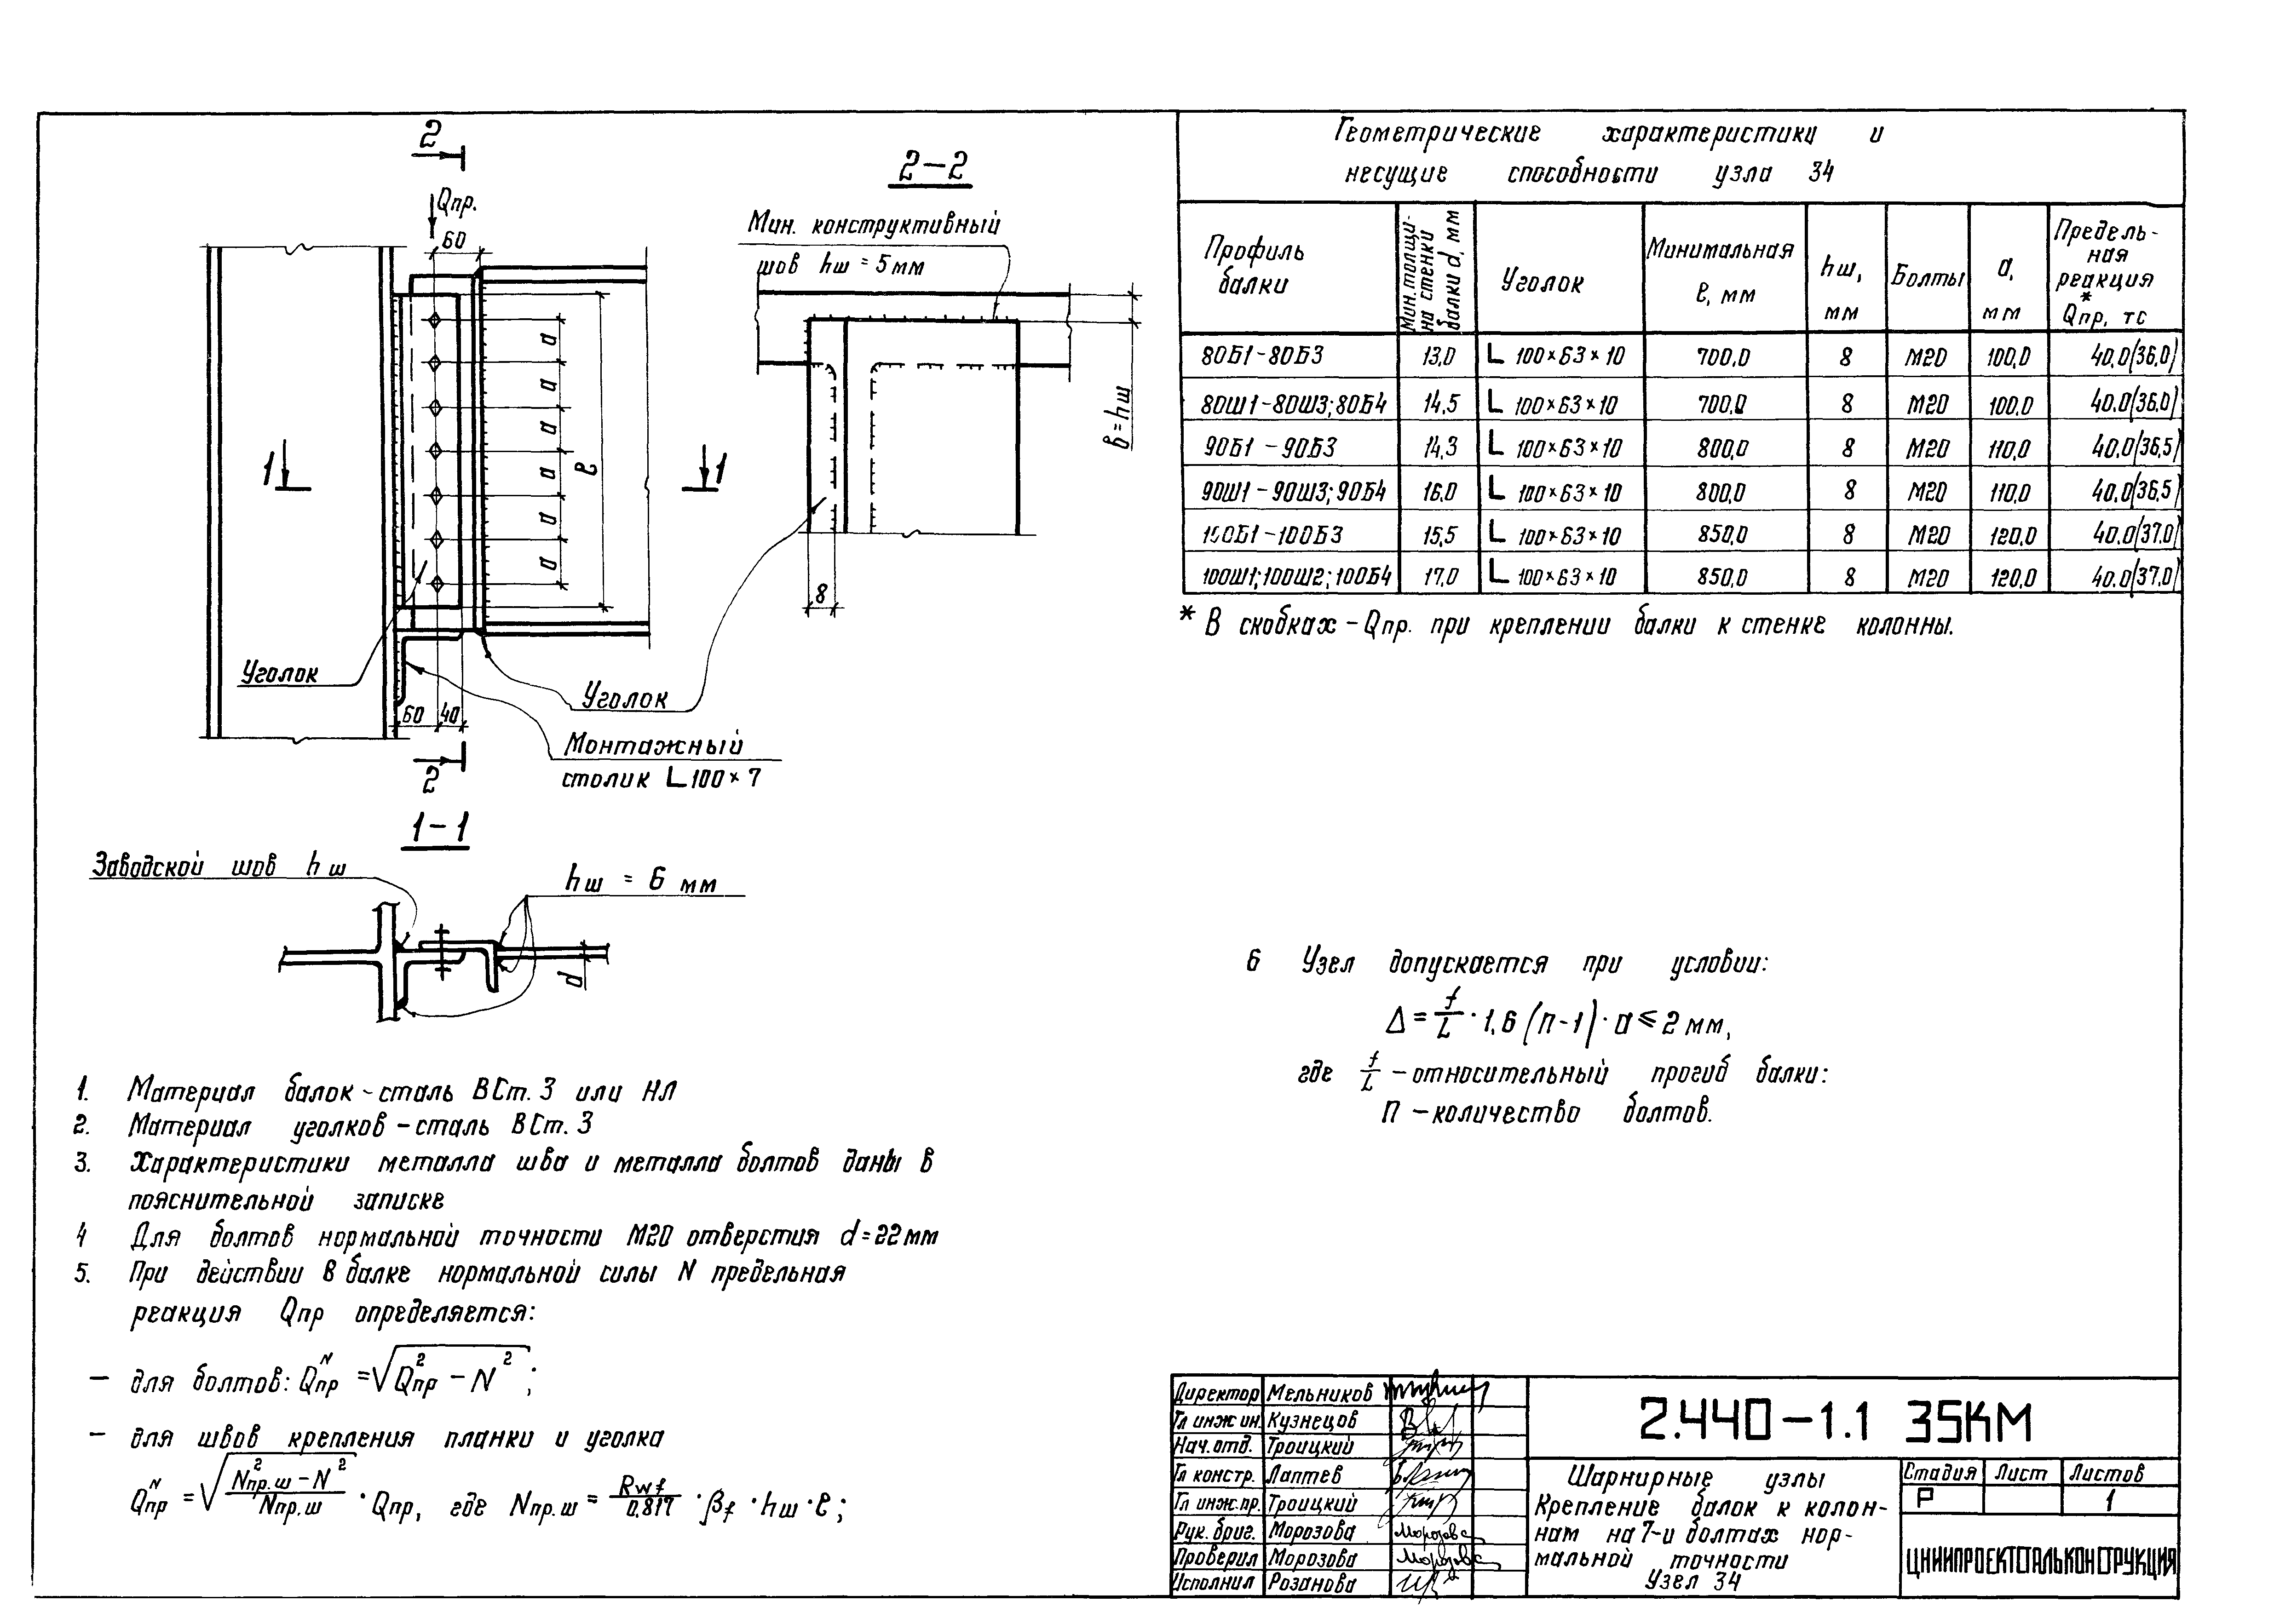 2
Qпр.
60
1
1
а
а
а
а
а
а
ℓ
Уголок
60 40
2
Уголок
Монтажный
столик L 100×7
2-2
Мин. конструктивный
шов hш = 5 мм
8
в=hш
1-1
Заводской шов hш
hш = 6 мм
d
1. Материал балок - сталь ВСт. 3 или НЛ
2. Материал уголков - сталь ВСт. 3
3. Характеристики металла шва и металла болтов даны в
пояснительной записке
4 Для болтов нормальной точности М20 отверстия d=22мм
5. При действии в балке нормальной силы N предельная
реакция Qпр определяется:
- для болтов: Qпр^N = √(Qпр² - N²);
- для швов крепления планки и уголка
Qпр^N = √((Nпр.ш² - N²)/Nпр.ш) · Qпр, где Nпр.ш = Rwf/0.817 · βf · hш · ℓ;
Геометрические характеристики и
несущие способности узла 34
Профиль балки | Мин. толщина стенки балки d, мм | Уголок | Минимальная ℓ, мм | hш, мм | Болты | а, мм | Предельная реакция * Qпр, тс
80Б1-80Б3 13,0 L 100×63×10 700,0 8 М20 100,0 40.0(36,0)
80Ш1-80Ш3;80Б4 14,5 L 100×63×10 700,0 8 М20 100,0 40.0(36.0)
90Б1-90Б3 14,3 L 100×63×10 800,0 8 М20 110,0 40.0(36,5)
90Ш1-90Ш3;90Б4 16,0 L 100×63×10 800,0 8 М20 110,0 40.0(36,5)
100Б1-100Б3 15,5 L 100×63×10 850,0 8 М20 120,0 40.0(37,0)
100Ш1;100Ш2;100Б4 17,0 L 100×63×10 850,0 8 М20 120,0 40.0(37,0)
* В скобках - Qпр. при креплении балки к стенке колонны.
6 Узел допускается при условии:
Δ = f/L · 1,6 (п-1) · а ≤ 2 мм,
где f/L - относительный прогиб балки:
п - количество болтов.
Директор Мельников
Гл инж ин. Кузнецов
Нач. отд. Троицкий
Гл констр. Лаптев
Гл инж.пр. Троицкий
Рук. бриг. Морозова Морозова
Проверил Морозова Морозова
Исполнил Розанова
2.440-1.1 35КМ
Шарнирные узлы
Крепление балок к колон-
нам на 7-и болтах нор-
мальной точности
Узел 34
Стадия Лист Листов
Р 1
ЦНИИПРОЕКТСТАЛЬКОНСТРУКЦИЯ